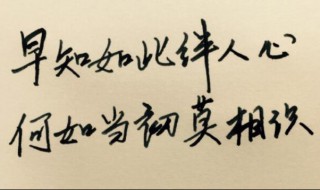 早知如此绊人心
何如当初莫相识